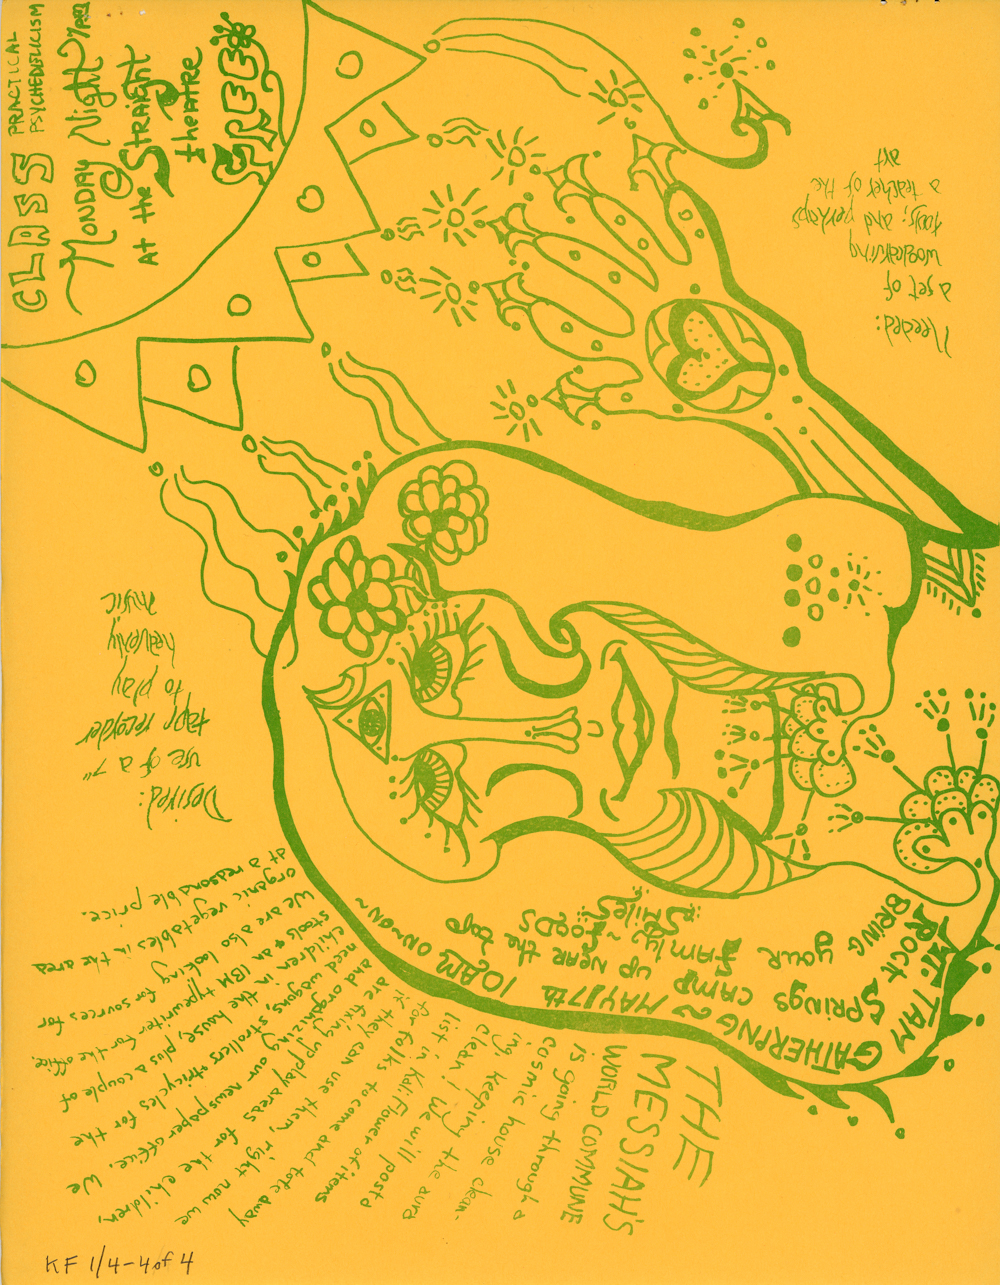 CLASS PRACTICAL
PSYCHEDELICISM
MONDAY Night
At the STRAIGHT
theatre
FREE
Needed:
a set of
woodcarving
tools; and perhaps
a teacher of the
art
Desired:
use of a 7"
tape recorder
to play
heavenly
music
GATHERING~ MAY 17th 10 AM ON~ON~
MT. TAM
ROCK SPRINGS CAMP UP NEAR the top
BRING YOUR FAMILY~FOODS
SMILES
THE
MESSIAH'S
WORLD COMMUNE
is going through a
cosmic house clean-
ing, keeping the aura
clean! We will post a
list in Kaliflower of items
for folks to come and tote away
if they can use them, right now we
are fixing up play areas for the children,
and organizing our newspaper office. We
need wagons, strollers + tricycles for the
children in the house, plus a couple of
stools + an IBM typewriter for the office.
We are also looking for sources for
organic vegetables in the area
at a reasonable price.
KF 1/4-4 of 4